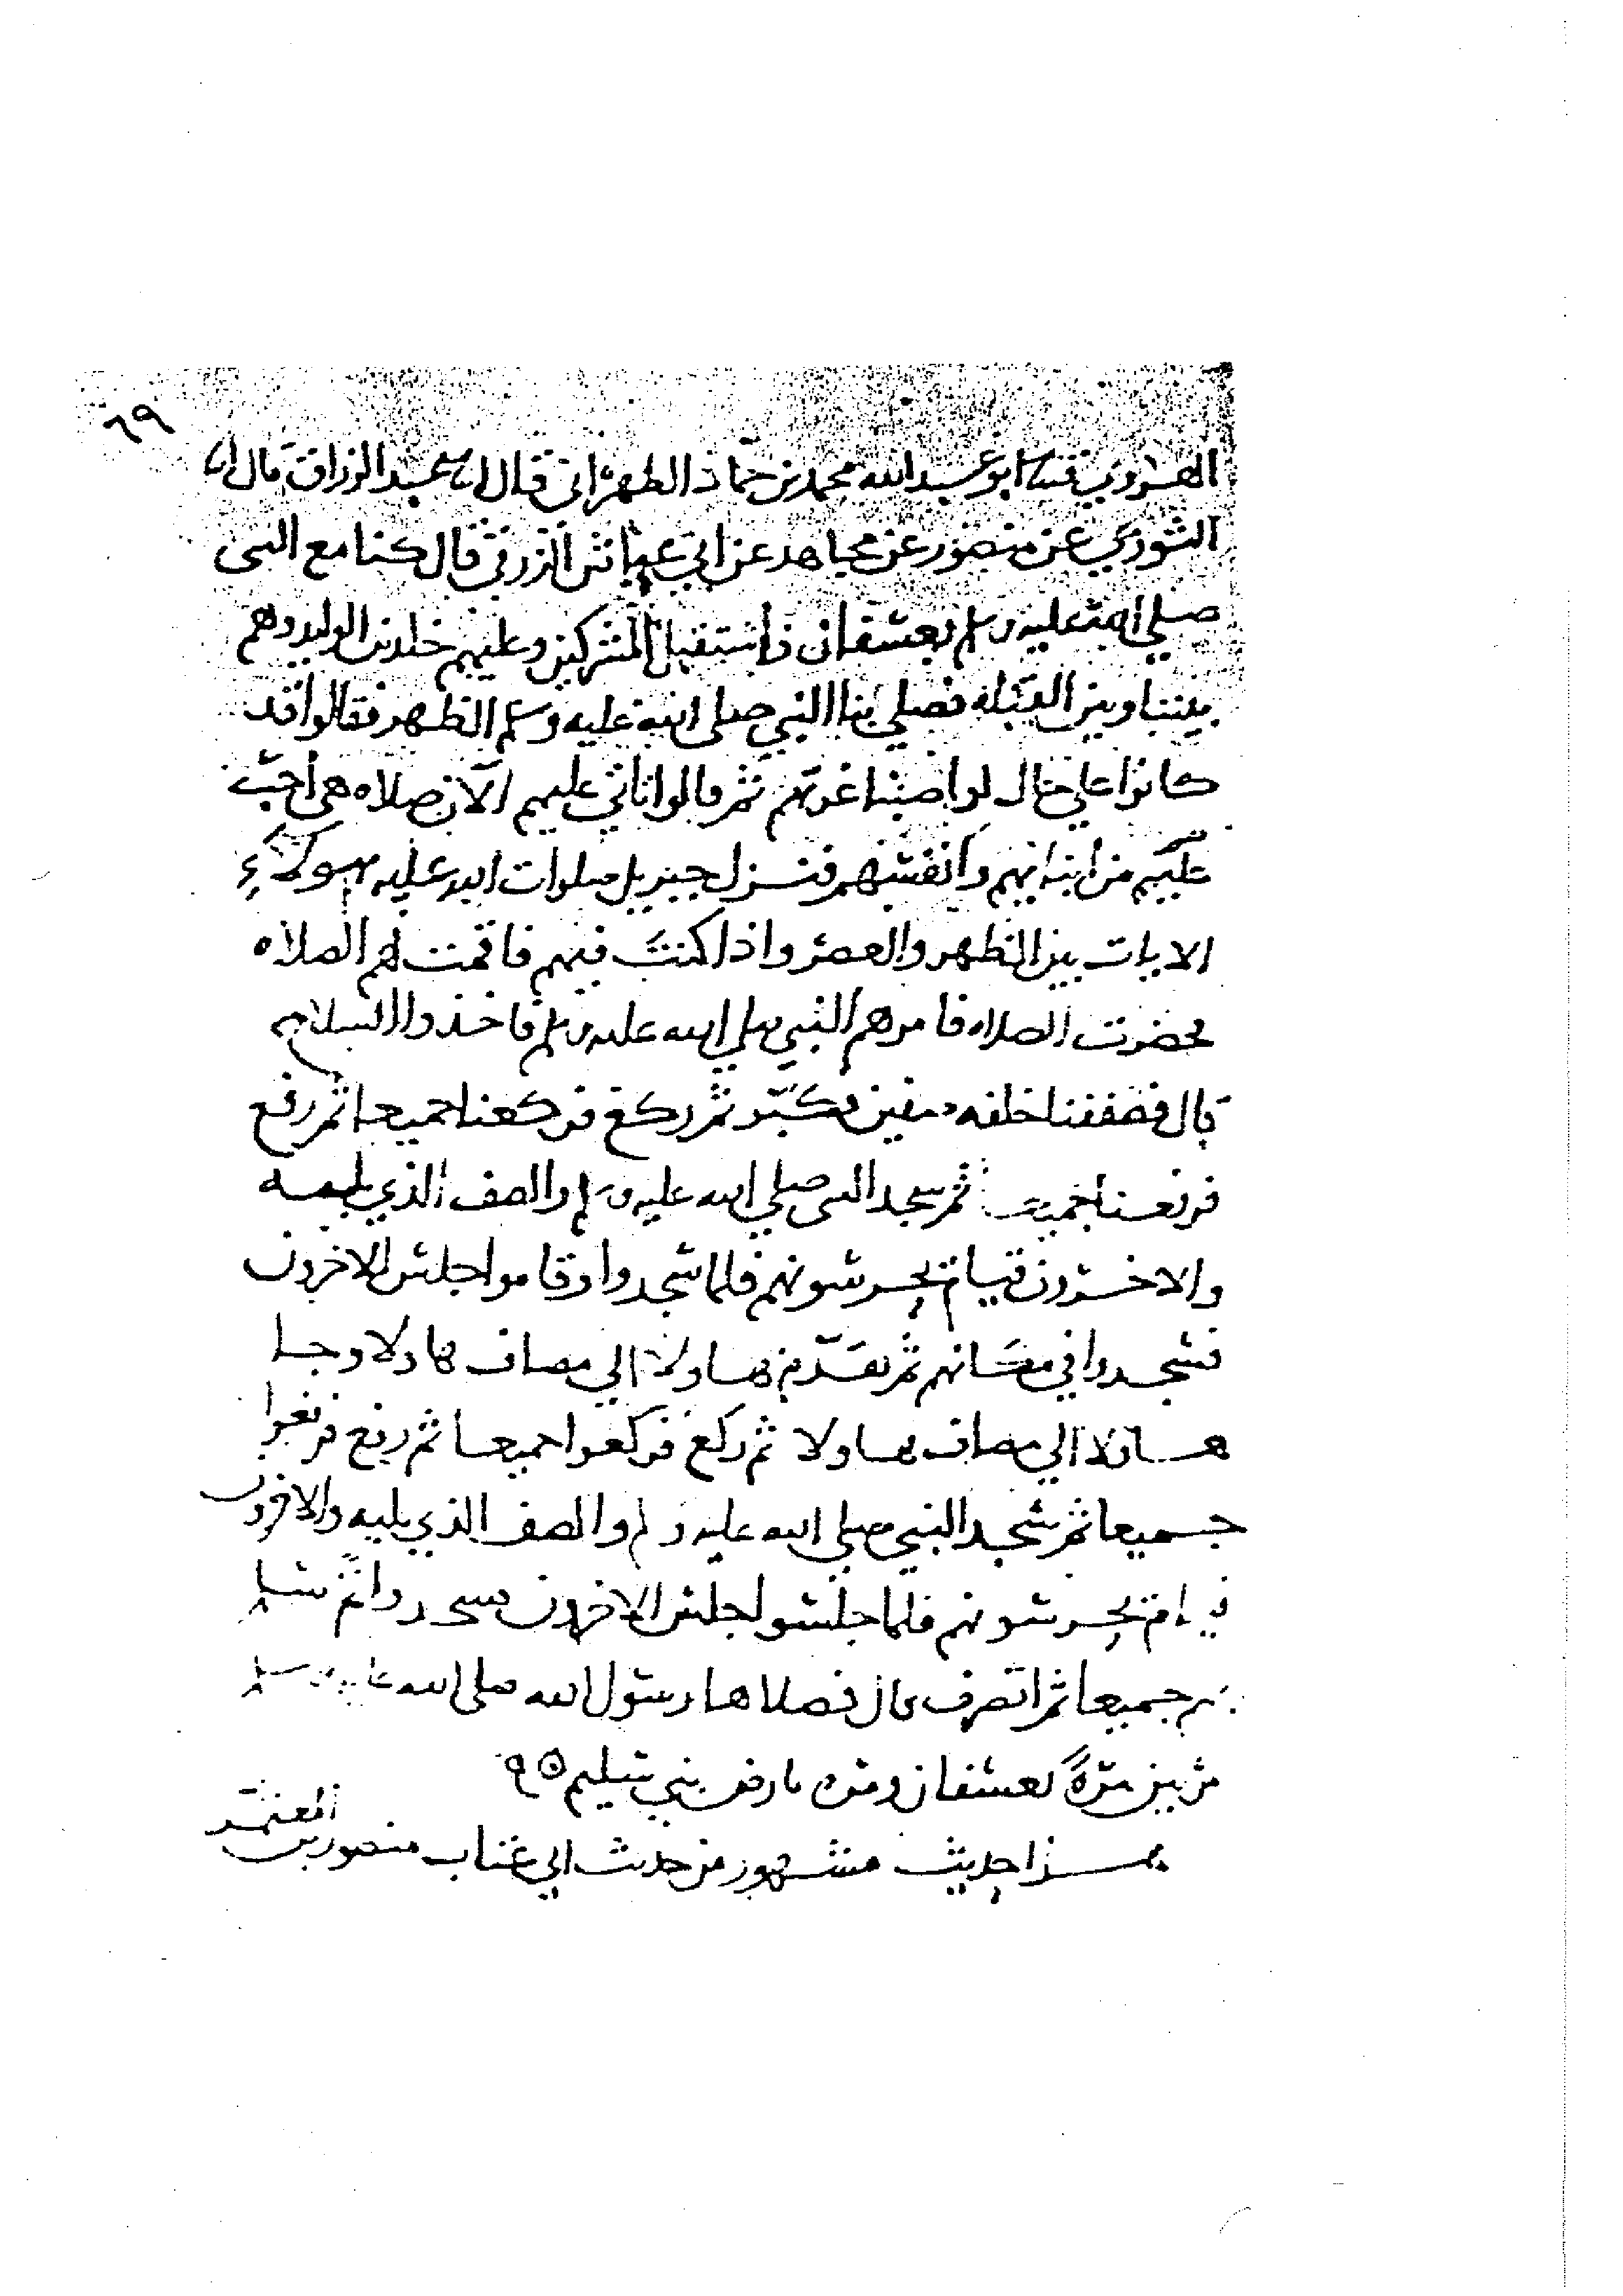 ٦٩
الهروي ثنا ابو عبد الله محمد بن حماد الطهراني قال انا عبد الرزاق قال انا
الثوري عن منصور عن مجاهد عن ابي عياش الزرقي قال كنا مع النبي
صلي الله عليه وسلم بعسفان فاستقبل المشركين وعليهم خالد بن الوليد وهم
بيننا وبين القبله فصلي بنا النبي صلي الله عليه وسلم الظهر فقالوا قد
كانوا علي حال لو اصبنا غرتهم ثم قالوا تاتي عليهم الآن صلاه هي أحب
عليهم من ابنائهم وانفسهم فنزل جبريل صلوات الله عليه بهولاء
الايات بين الظهر والعصر واذا كنت فيهم فاقمت لهم الصلاه
فحضرت الصلاه فامرهم النبي صلي الله عليه وسلم فاخذوا السلاح
قال فصففنا خلفه صفين فكبر ثم ركع فركعنا جميعا ثم رفع
فرفعنا جميعا ثم سجد النبي صلي الله عليه وسلم والصف الذي يليه
والاخرون قيام يحرسونهم فلما سجدوا وقاموا جلس الاخرون
فسجدوا في مكانهم ثم تقدم هاولا الي مصاف هاولا وجا
هاولا الي مصاف هاولا ثم ركع فركعوا جميعا ثم رفع فرفعوا
جميعا ثم سجد النبي صلي الله عليه وسلم والصف الذي يليه والاخرون
قيام يحرسونهم فلما جلسوا جلس الاخرون فسجدوا ثم سلم
جميعا ثم انصرف قال فصلاها رسول الله صلي الله عليه وسلم
مرتين مرة بعسفان ومره بارض بني سليم
هذا حديث مشهور من حديث ابي عتاب منصور بن المعتمر